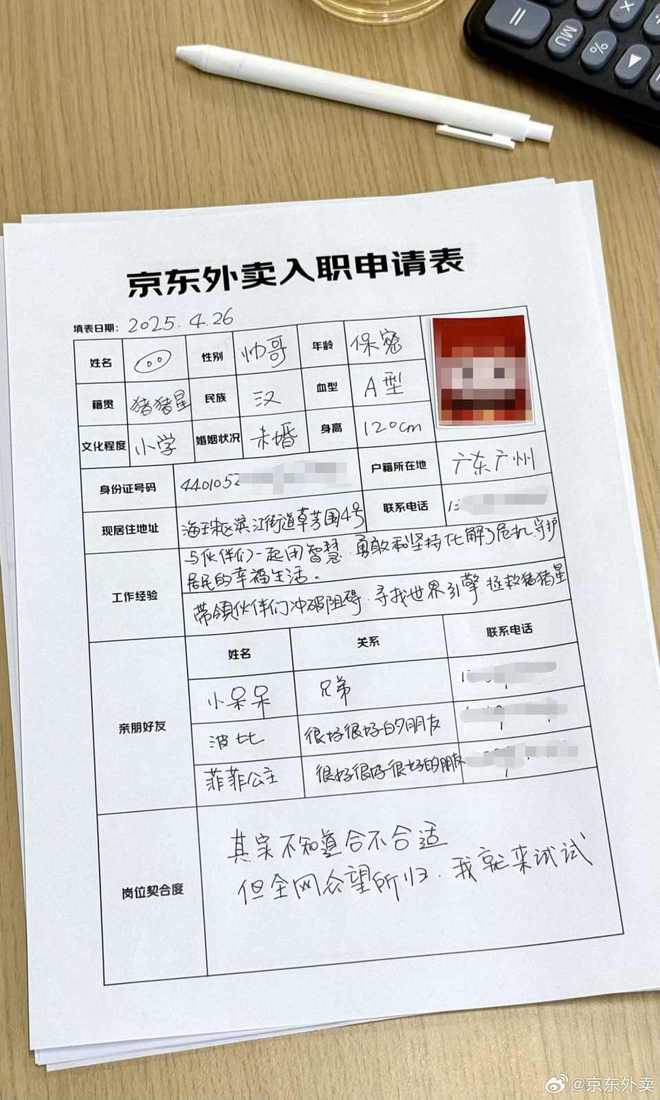 = MU % ▶
京东外卖入职申请表
填表日期: 2025.4.26
姓名 性别 帅哥 年龄 保密
籍贯 猪猪星 民族 汉 血型 A型
文化程度 小学 婚姻状况 未婚 身高 120cm
身份证号码 4401052 户籍所在地 广东广州
现居住地址 海珠区滨江街道草芳围4号 联系电话 1
工作经验 与伙伴们一起用智慧、勇敢和坚持化解了危机,守护
居民的幸福生活。
带领伙伴们冲破阻碍,寻找世界引擎,拯救猪猪星
亲朋好友 姓名 关系 联系电话
小呆呆 兄弟 1
波比 很好很好的朋友
菲菲公主 很好很好很好的朋友
岗位契合度 其实不知道合不合适
但全网众望所归,我就来试试
@京东外卖